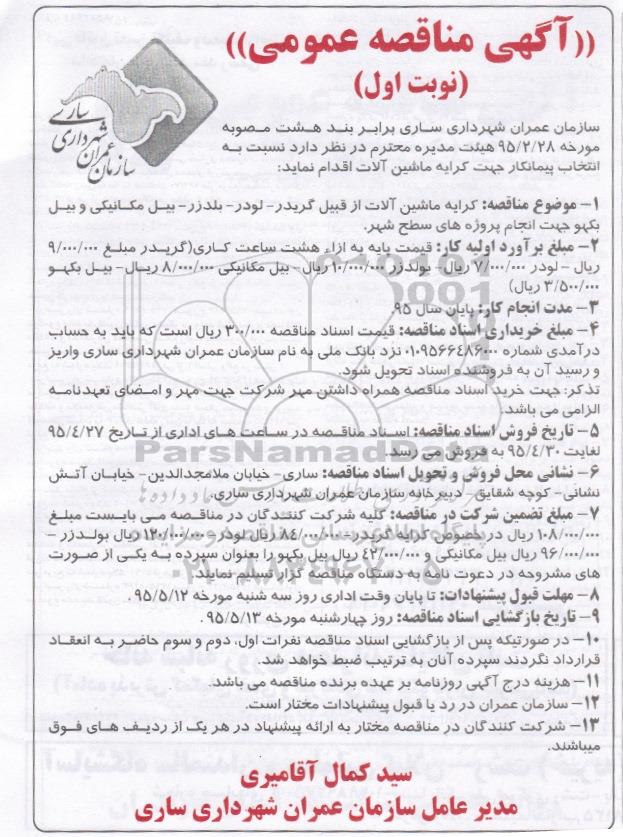 ((آگهی مناقصه عمومی))
(نوبت اول)
سازمان عمران شهرداری ساری
سازمان عمران شهرداری ساری برابر بند هشت مصوبه
مورخه ۹۵/۲/۲۸ هیئت مدیره محترم در نظر دارد نسبت به
انتخاب پیمانکار جهت کرایه ماشین آلات اقدام نماید:
۱- موضوع مناقصه: کرایه ماشین آلات از قبیل گریدر- لودر- بلدزر- بیل مکانیکی و بیل
بکهو جهت انجام پروژه های سطح شهر.
۲- مبلغ برآورد اولیه کار: قیمت پایه به ازاء هشت ساعت کاری(گریدر مبلغ ۹/۰۰۰/۰۰۰
ریال - لودر ۷/۰۰۰/۰۰۰ ریال- بولدزر ۱۰/۰۰۰/۰۰۰ ریال- بیل مکانیکی ۸/۰۰۰/۰۰۰ ریال- بیل بکهو
۳/۵۰۰/۰۰۰ ریال)
۳- مدت انجام کار: پایان سال ۹۵.
۴- مبلغ خریداری اسناد مناقصه: قیمت اسناد مناقصه ۳۰۰/۰۰۰ ریال است که باید به حساب
درآمدی شماره ۰۱۰۹۵۶۶۴۸۶۰۰۰ نزد بانک ملی به نام سازمان عمران شهرداری ساری واریز
و رسید آن به فروشنده اسناد تحویل شود.
تذکر: جهت خرید اسناد مناقصه همراه داشتن مهر شرکت جهت مهر و امضای تعهدنامه
الزامی می باشد.
۵- تاریخ فروش اسناد مناقصه: اسناد مناقصه در ساعت های اداری از تاریخ ۹۵/٤/۲۷
لغایت ۹۵/٤/۳۰ به فروش می رسد.
۶- نشانی محل فروش و تحویل اسناد مناقصه: ساری- خیابان ملامجدالدین- خیابان آتش
نشانی- کوچه شقایق- دبیرخانه سازمان عمران شهرداری ساری.
۷- مبلغ تضمین شرکت در مناقصه: کلیه شرکت کنندگان در مناقصه می بایست مبلغ
۱۰۸/۰۰۰/۰۰۰ ریال در خصوص کرایه گریدر- ۸٤/۰۰۰/۰۰۰ ریال لودر- ۱۲۰/۰۰۰/۰۰۰ ریال بولدزر -
۹۶/۰۰۰/۰۰۰ ریال بیل مکانیکی و ٤۲/۰۰۰/۰۰۰ ریال بیل بکهو را بعنوان سپرده به یکی از صورت
های مشروحه در دعوت نامه به دستگاه مناقصه گزار تسلیم نمایند.
۸- مهلت قبول پیشنهادات: تا پایان وقت اداری روز سه شنبه مورخه ۹۵/۵/۱۲.
۹- تاریخ بازگشایی اسناد مناقصه: روز چهارشنبه مورخه ۹۵/۵/۱۳.
۱۰- در صورتیکه پس از بازگشایی اسناد مناقصه نفرات اول، دوم و سوم حاضر به انعقاد
قرارداد نگردند سپرده آنان به ترتیب ضبط خواهد شد.
۱۱- هزینه درج آگهی روزنامه بر عهده برنده مناقصه می باشد.
۱۲- سازمان عمران در رد یا قبول پیشنهادات مختار است.
۱۳- شرکت کنندگان در مناقصه مختار به ارائه پیشنهاد در هر یک از ردیف های فوق
میباشند.
سید کمال آقامیری
مدیر عامل سازمان عمران شهرداری ساری
ParsNamadData